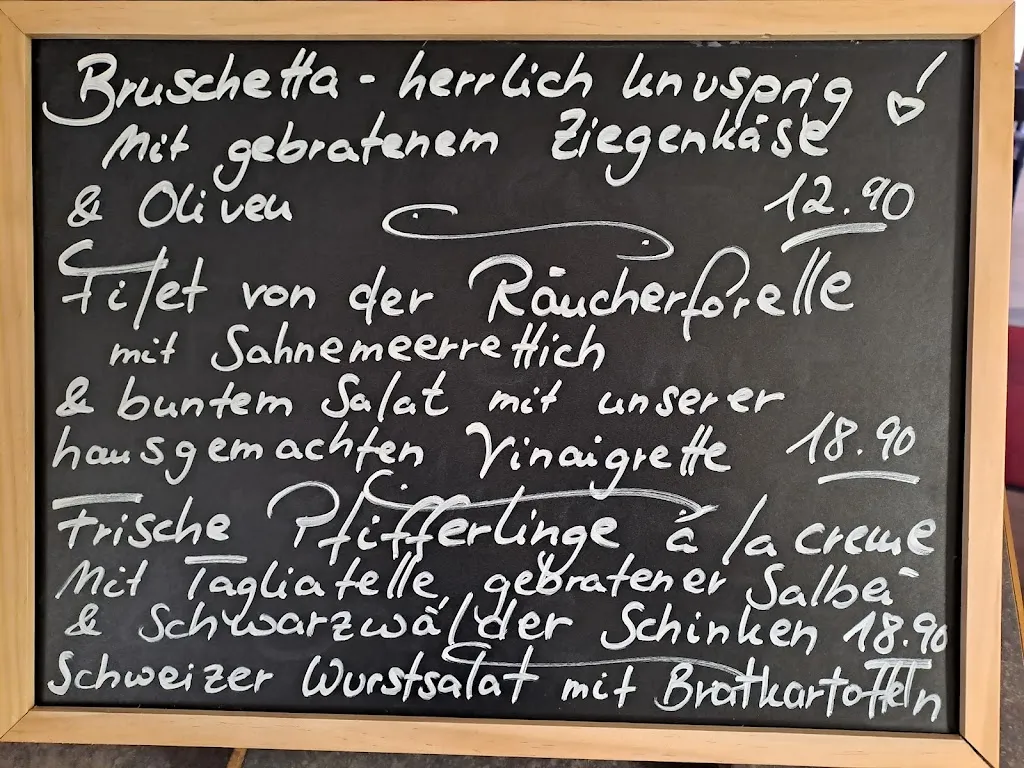 Bruschetta - herrlich knusprig !
Mit gebratenem Ziegenkäse
& Oliven 12.90
Filet von der Räucherforelle
mit Sahnemeerrettich
& buntem Salat mit unserer
hausgemachten Vinaigrette 18.90
Frische Pfifferlinge á la creme
Mit Tagliatelle, gebratener Salbei
& Schwarzwälder Schinken 18.90
Schweizer Wurstsalat mit Bratkartoffeln